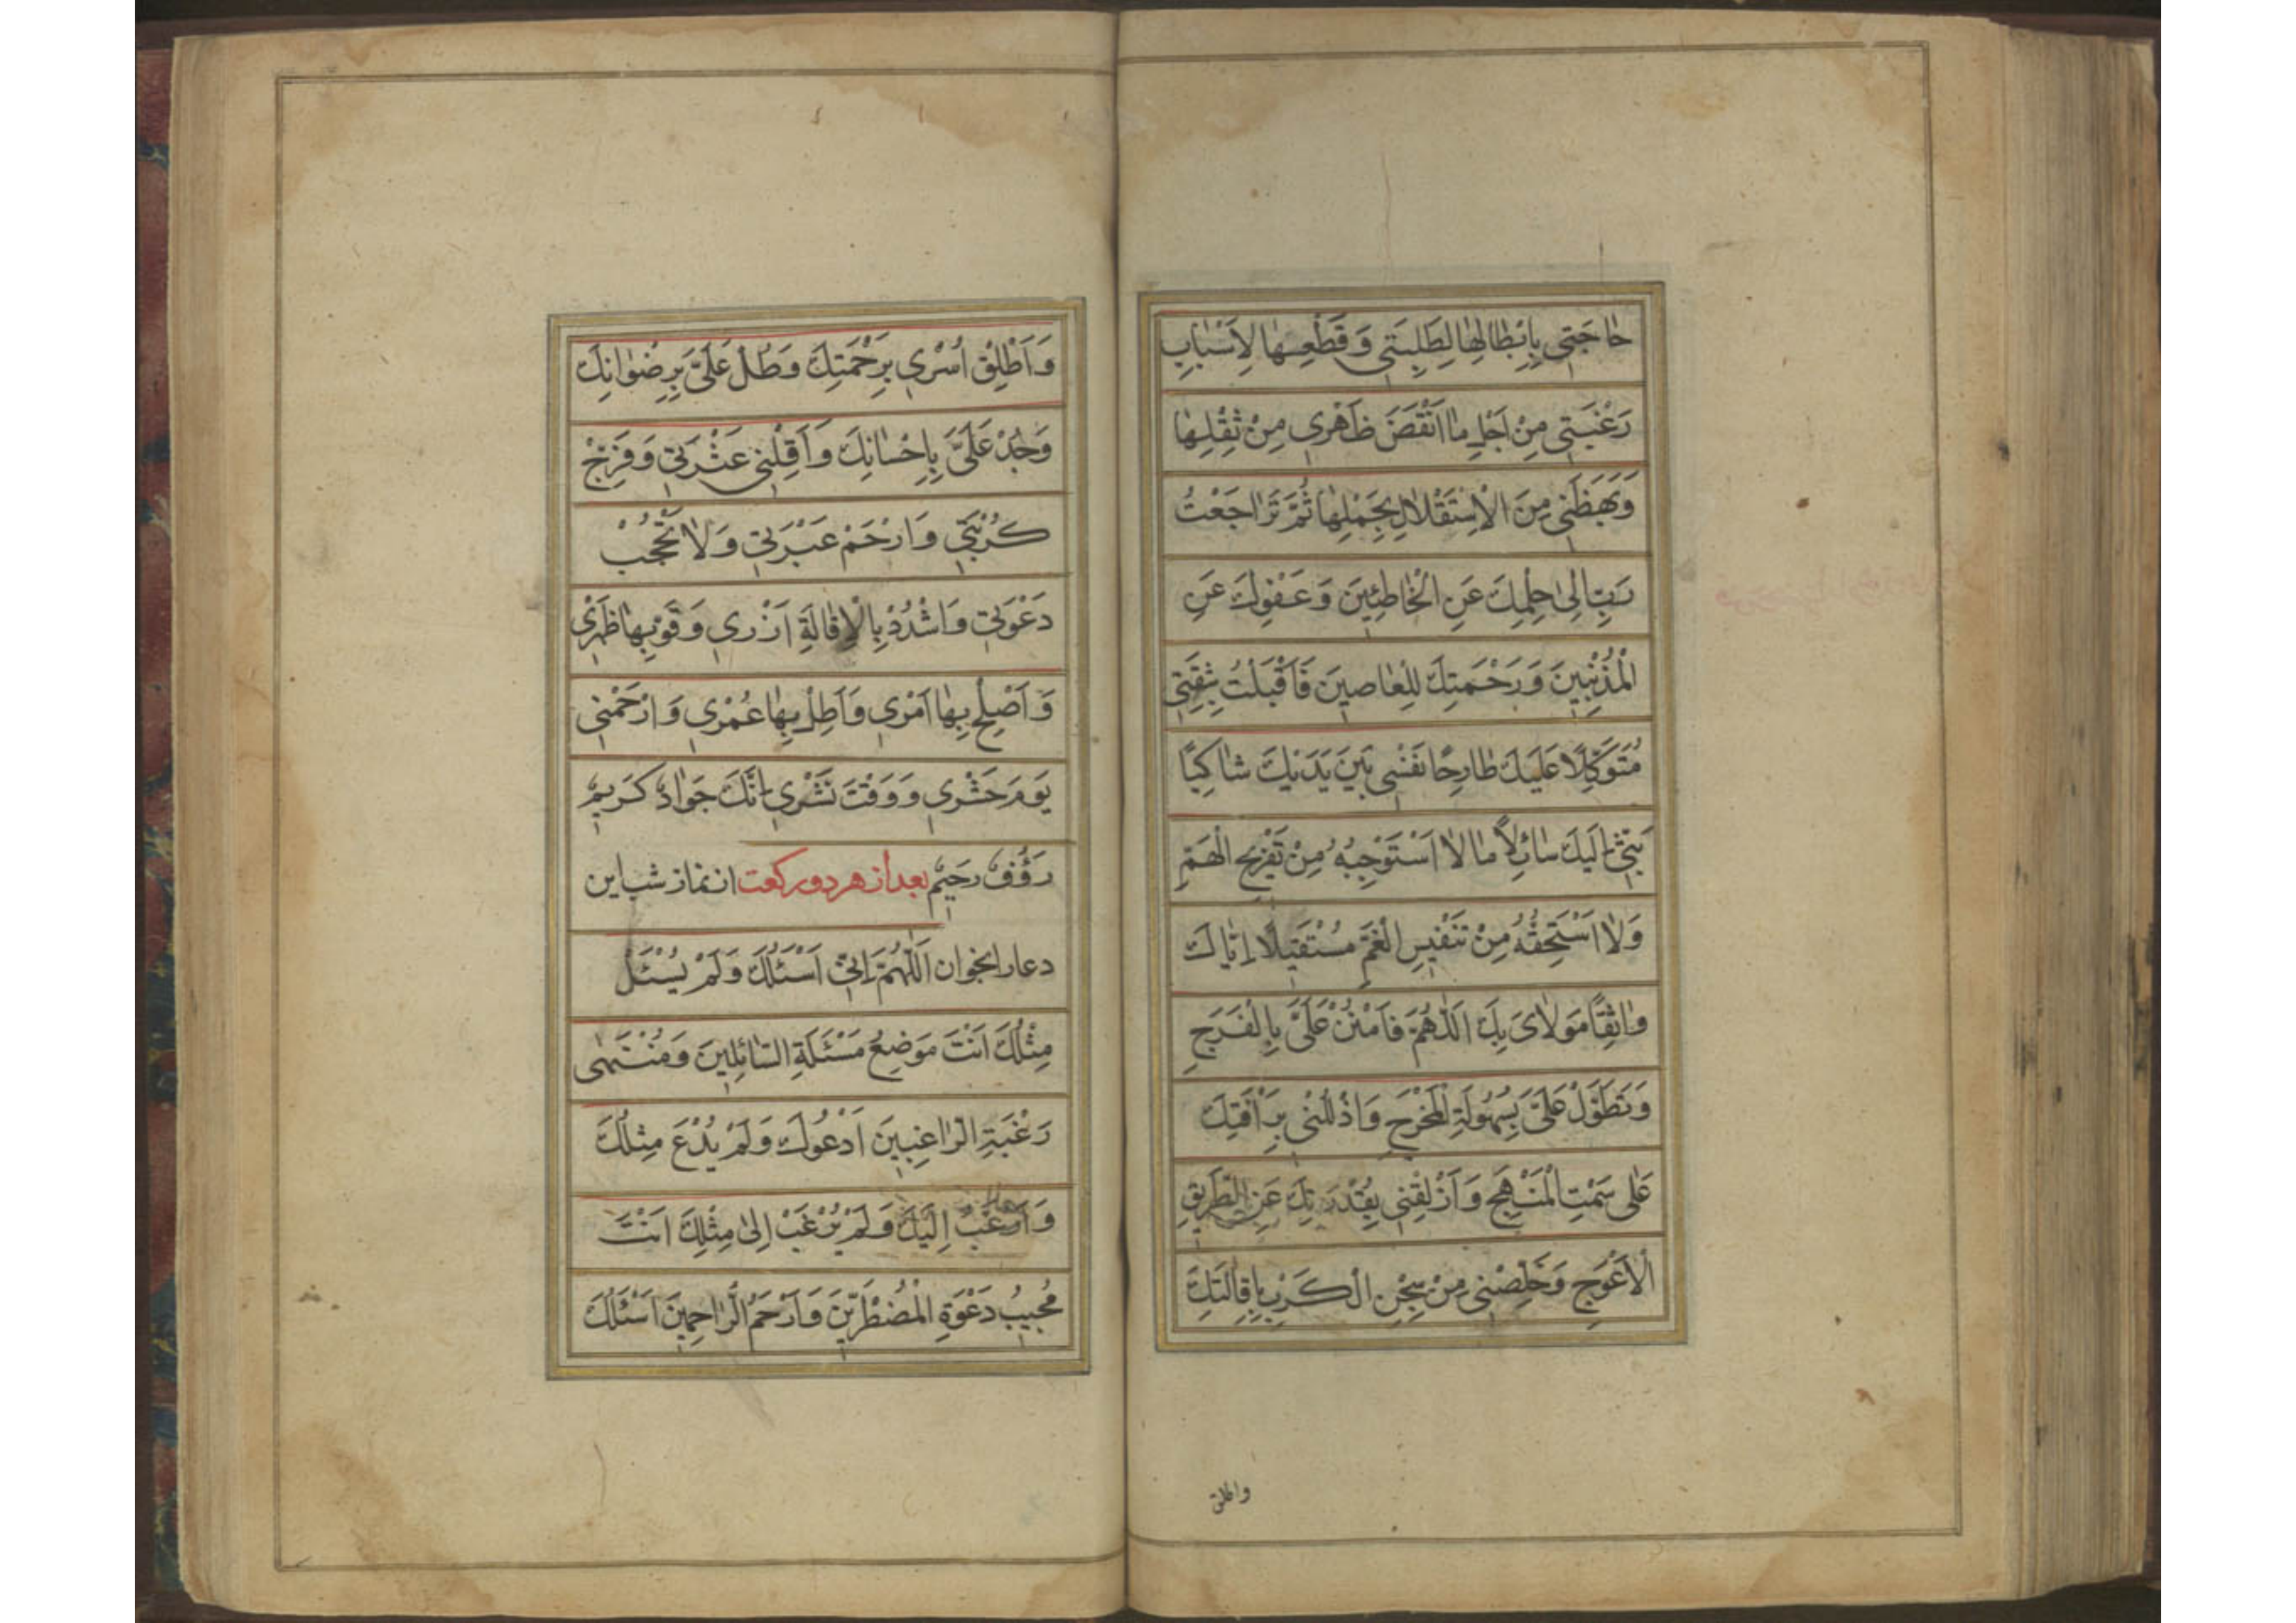 حٰاجَتِي بِاِبْطٰالِهٰا لِطَلِبَتِي وَقَطْعِهٰا لِاَسْبٰابِ
رَغْبَتِي مِنْ اَجْلِ مٰا اَنْقَضَ ظَهْرِي مِنْ ثِقْلِهٰا
وَبَهَظَنِي مِنَ الْاِسْتِقْلٰالِ بِحَمْلِهٰا ثُمَّ تَرٰاجَعْتُ
رَبِّ اِلىٰ حِلْمِكَ عَنِ الْخٰاطِئِينَ وَعَفْوِكَ عَنِ
الْمُذْنِبِينَ وَرَحْمَتِكَ لِلْعٰاصِينَ فَاَقْبَلْتُ بِثِقَتِي
مُتَوَكِّلًا عَلَيْكَ طٰارِحًا نَفْسِي بَيْنَ يَدَيْكَ شٰاكِيًا
بَثِّي اِلَيْكَ سٰائِلًا مٰا لٰا اَسْتَوْجِبُهُ مِنْ تَفْرِيجِ الْهَمِّ
وَلٰا اَسْتَحِقُّهُ مِنْ تَنْفِيسِ الْغَمِّ مُسْتَقِيلًا اِيّٰاكَ
وٰاثِقًا مَوْلٰايَ بِكَ اَللّٰهُمَّ فَامْنُنْ عَلَيَّ بِالْفَرَجِ
وَتَطَوَّلْ عَلَيَّ بِسُهُولَةِ الْمَخْرَجِ وَادْلُلْنِي بِرَأْفَتِكَ
عَلٰى سَمْتِ الْمَنْهَجِ وَاَزْلِقْنِي بِقُدْرَتِكَ عَنِ الطَّرِيقِ
الْاَعْوَجِ وَخَلِّصْنِي مِنْ سِجْنِ الْكَرْبِ بِاِقٰالَتِكَ
واطلق
وَاَطْلِقْ اَسْرِي بِرَحْمَتِكَ وَطُلْ عَلَيَّ بِرِضْوٰانِكَ
وَجُدْ عَلَيَّ بِاِحْسٰانِكَ وَاَقِلْنِي عَثْرَتِي وَفَرِّجْ
كُرْبَتِي وَارْحَمْ عَبْرَتِي وَلٰا تَحْجُبْ
دَعْوَتِي وَاشْدُدْ بِالْاِقٰالَةِ اَزْرِي وَقَوِّ بِهٰا ظَهْرِي
وَاَصْلِحْ بِهٰا اَمْرِي وَاَطِلْ بِهٰا عُمْرِي وَارْحَمْنِي
يَوْمَ حَشْرِي وَوَقْتَ نَشْرِي اِنَّكَ جَوٰادٌ كَرِيمٌ
رَؤُفٌ رَحِيمٌ بعد از هر دو ركعت از نماز شب اين
دعا را بخوان اَللّٰهُمَّ اِنِّي اَسْئَلُكَ وَلَمْ يُسْئَلْ
مِثْلُكَ اَنْتَ مَوْضِعُ مَسْئَلَةِ السّٰائِلِينَ وَمُنْتَهٰى
رَغْبَةِ الرّٰاغِبِينَ اَدْعُوكَ وَلَمْ يُدْعَ مِثْلُكَ
وَاَرْغَبُ اِلَيْكَ وَلَمْ يُرْغَبْ اِلىٰ مِثْلِكَ اَنْتَ
مُجِيبُ دَعْوَةِ الْمُضْطَرِّينَ وَاَرْحَمُ الرّٰاحِمِينَ اَسْئَلُكَ